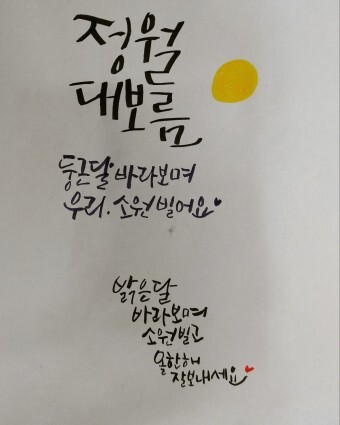 정월
대보름
둥근달 바라보며
우리. 소원빌어요
밝은달
바라보며
소원빌고
올한해
잘보내세요